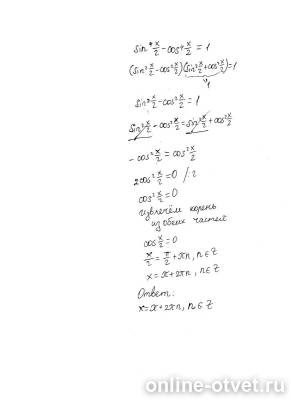 sin⁴ x/2 - cos⁴ x/2 = 1
(sin² x/2 - cos² x/2)(sin² x/2 + cos² x/2) = 1
1
sin² x/2 - cos² x/2 = 1
sin² x/2 - cos² x/2 = sin² x/2 + cos² x/2
- cos² x/2 = cos² x/2
2cos² x/2 = 0 /:2
cos² x/2 = 0
извлечём корень
из обеих частей
cos x/2 = 0
x/2 = π/2 + πn, n ∈ Z
x = π + 2πn, n ∈ Z
Ответ:
x = π + 2πn, n ∈ Z
online-otvet.ru